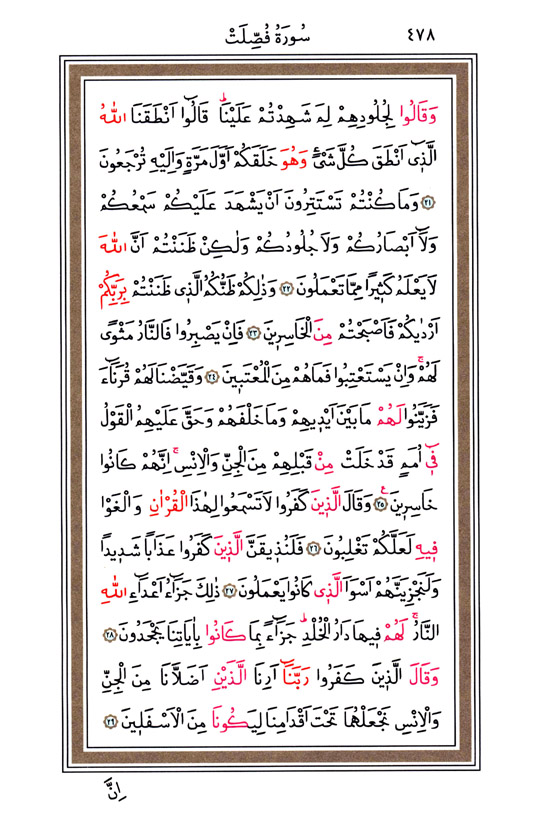 سُورَةُ فُصِّلَتْ ٤٧٨
وَقَالُوا لِجُلُودِهِمْ لِمَ شَهِدْتُمْ عَلَيْنَاۜ قَالُٓوا اَنْطَقَنَا اللّٰهُ
الَّذ۪ٓي اَنْطَقَ كُلَّ شَيْءٍ وَهُوَ خَلَقَكُمْ اَوَّلَ مَرَّةٍ وَاِلَيْهِ تُرْجَعُونَ
﴿٢١﴾ وَمَا كُنْتُمْ تَسْتَتِرُونَ اَنْ يَشْهَدَ عَلَيْكُمْ سَمْعُكُمْ
وَلَٓا اَبْصَارُكُمْ وَلَا جُلُودُكُمْ وَلٰكِنْ ظَنَنْتُمْ اَنَّ اللّٰهَ
لَا يَعْلَمُ كَث۪يرًا مِمَّا تَعْمَلُونَ ﴿٢٢﴾ وَذٰلِكُمْ ظَنُّكُمُ الَّذ۪ي ظَنَنْتُمْ بِرَبِّكُمْ
اَرْدٰيكُمْ فَاَصْبَحْتُمْ مِنَ الْخَاسِر۪ينَ ﴿٢٣﴾ فَاِنْ يَصْبِرُوا فَالنَّارُ مَثْوًى
لَهُمْۚ وَاِنْ يَسْتَعْتِبُوا فَمَا هُمْ مِنَ الْمُعْتَب۪ينَ ﴿٢٤﴾ وَقَيَّضْنَا لَهُمْ قُرَنَٓاءَ
فَزَيَّنُوا لَهُمْ مَا بَيْنَ اَيْد۪يهِمْ وَمَا خَلْفَهُمْ وَحَقَّ عَلَيْهِمُ الْقَوْلُ
ف۪ٓي اُمَمٍ قَدْ خَلَتْ مِنْ قَبْلِهِمْ مِنَ الْجِنِّ وَالْاِنْسِۚ اِنَّهُمْ كَانُوا
خَاسِر۪ينَ۟ ﴿٢٥﴾ وَقَالَ الَّذ۪ينَ كَفَرُوا لَا تَسْمَعُوا لِهٰذَا الْقُرْاٰنِ وَالْغَوْا
ف۪يهِ لَعَلَّكُمْ تَغْلِبُونَ ﴿٢٦﴾ فَلَنُذ۪يقَنَّ الَّذ۪ينَ كَفَرُوا عَذَابًا شَد۪يدًا
وَلَنَجْزِيَنَّهُمْ اَسْوَاَ الَّذ۪ي كَانُوا يَعْمَلُونَ ﴿٢٧﴾ ذٰلِكَ جَزَٓاءُ اَعْدَٓاءِ اللّٰهِ
النَّارُۚ لَهُمْ ف۪يهَا دَارُ الْخُلْدِۜ جَزَٓاءً بِمَا كَانُوا بِاٰيَاتِنَا يَجْحَدُونَ ﴿٢٨﴾
وَقَالَ الَّذ۪ينَ كَفَرُوا رَبَّنَٓا اَرِنَا الَّذَيْنِ اَضَلَّانَا مِنَ الْجِنِّ
وَالْاِنْسِ نَجْعَلْهُمَا تَحْتَ اَقْدَامِنَا لِيَكُونَا مِنَ الْاَسْفَل۪ينَ ﴿٢٩﴾
اِنَّ